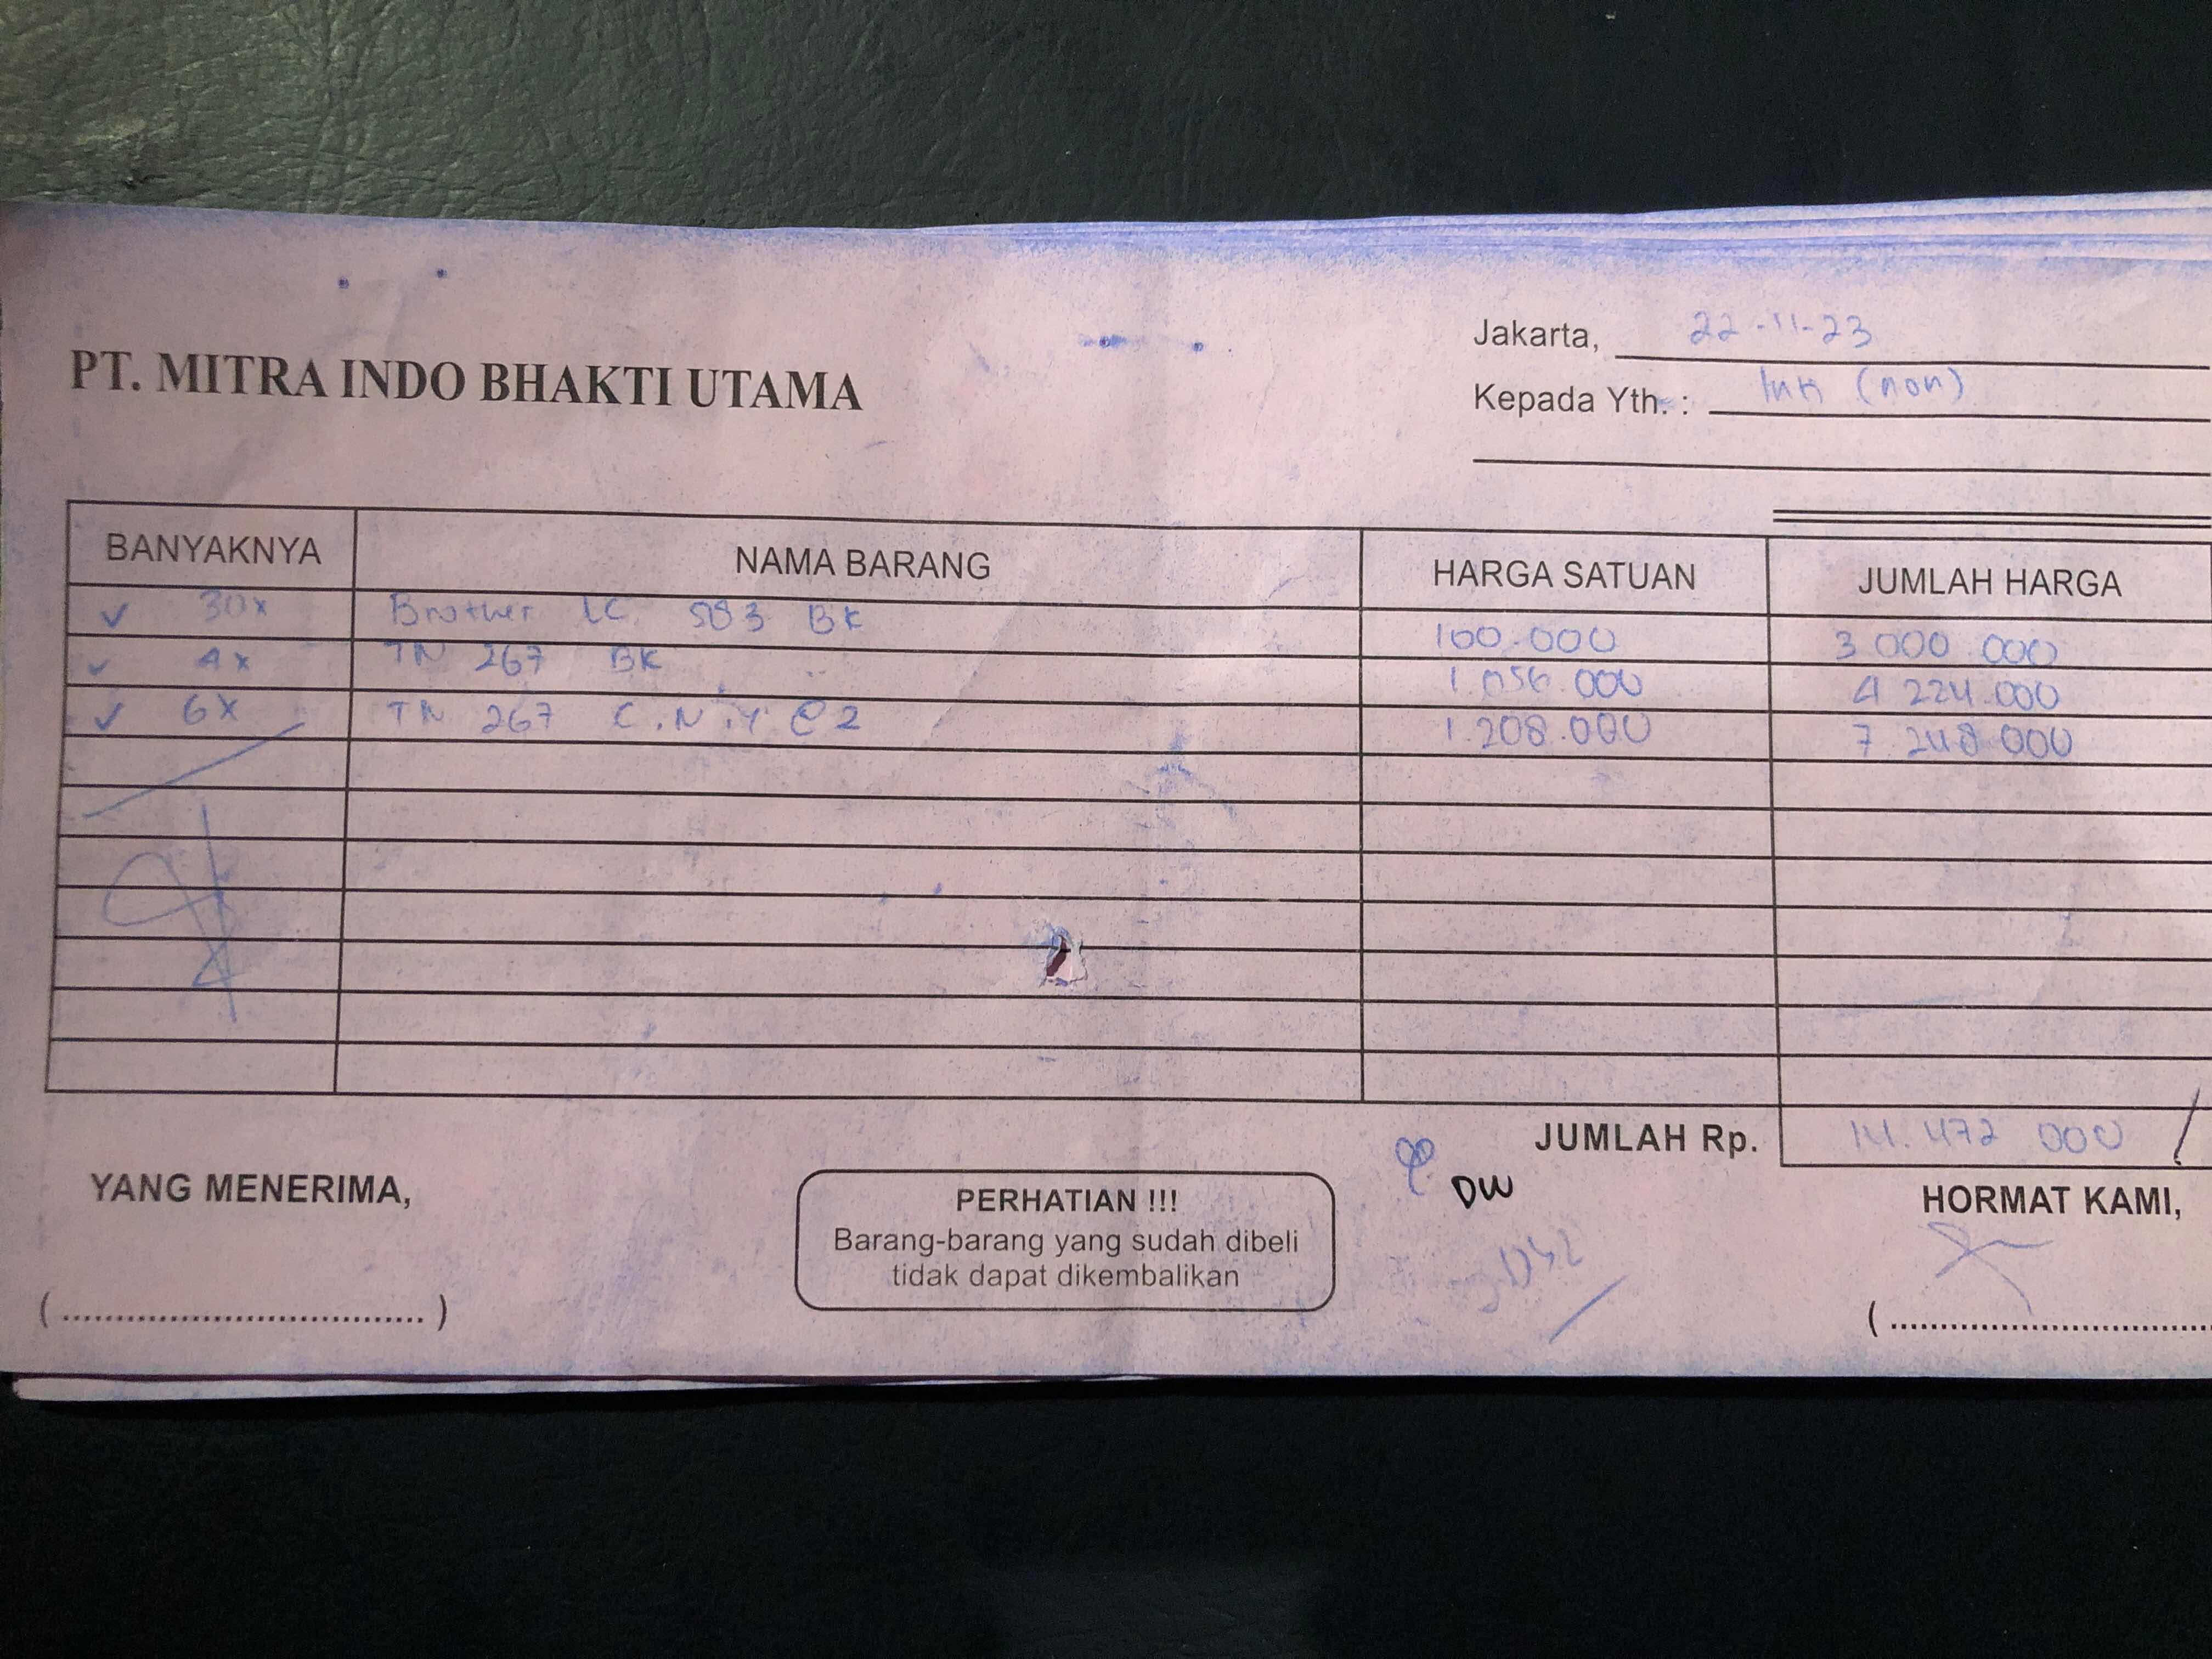 PT. MITRA INDO BHAKTI UTAMA
Jakarta, 22-11-23
Kepada Yth. : (non)
BANYAKNYA NAMA BARANG HARGA SATUAN JUMLAH HARGA
30x Brother LC 583 BK 100.000 3 000.000
4x TN 267 BK 1.056.000 4 224.000
6x TN 267 C.N.Y @2 1.208.000 7 248 000
JUMLAH Rp. 14.472 000
DW
YANG MENERIMA,
PERHATIAN !!!
Barang-barang yang sudah dibeli
tidak dapat dikembalikan
HORMAT KAMI,